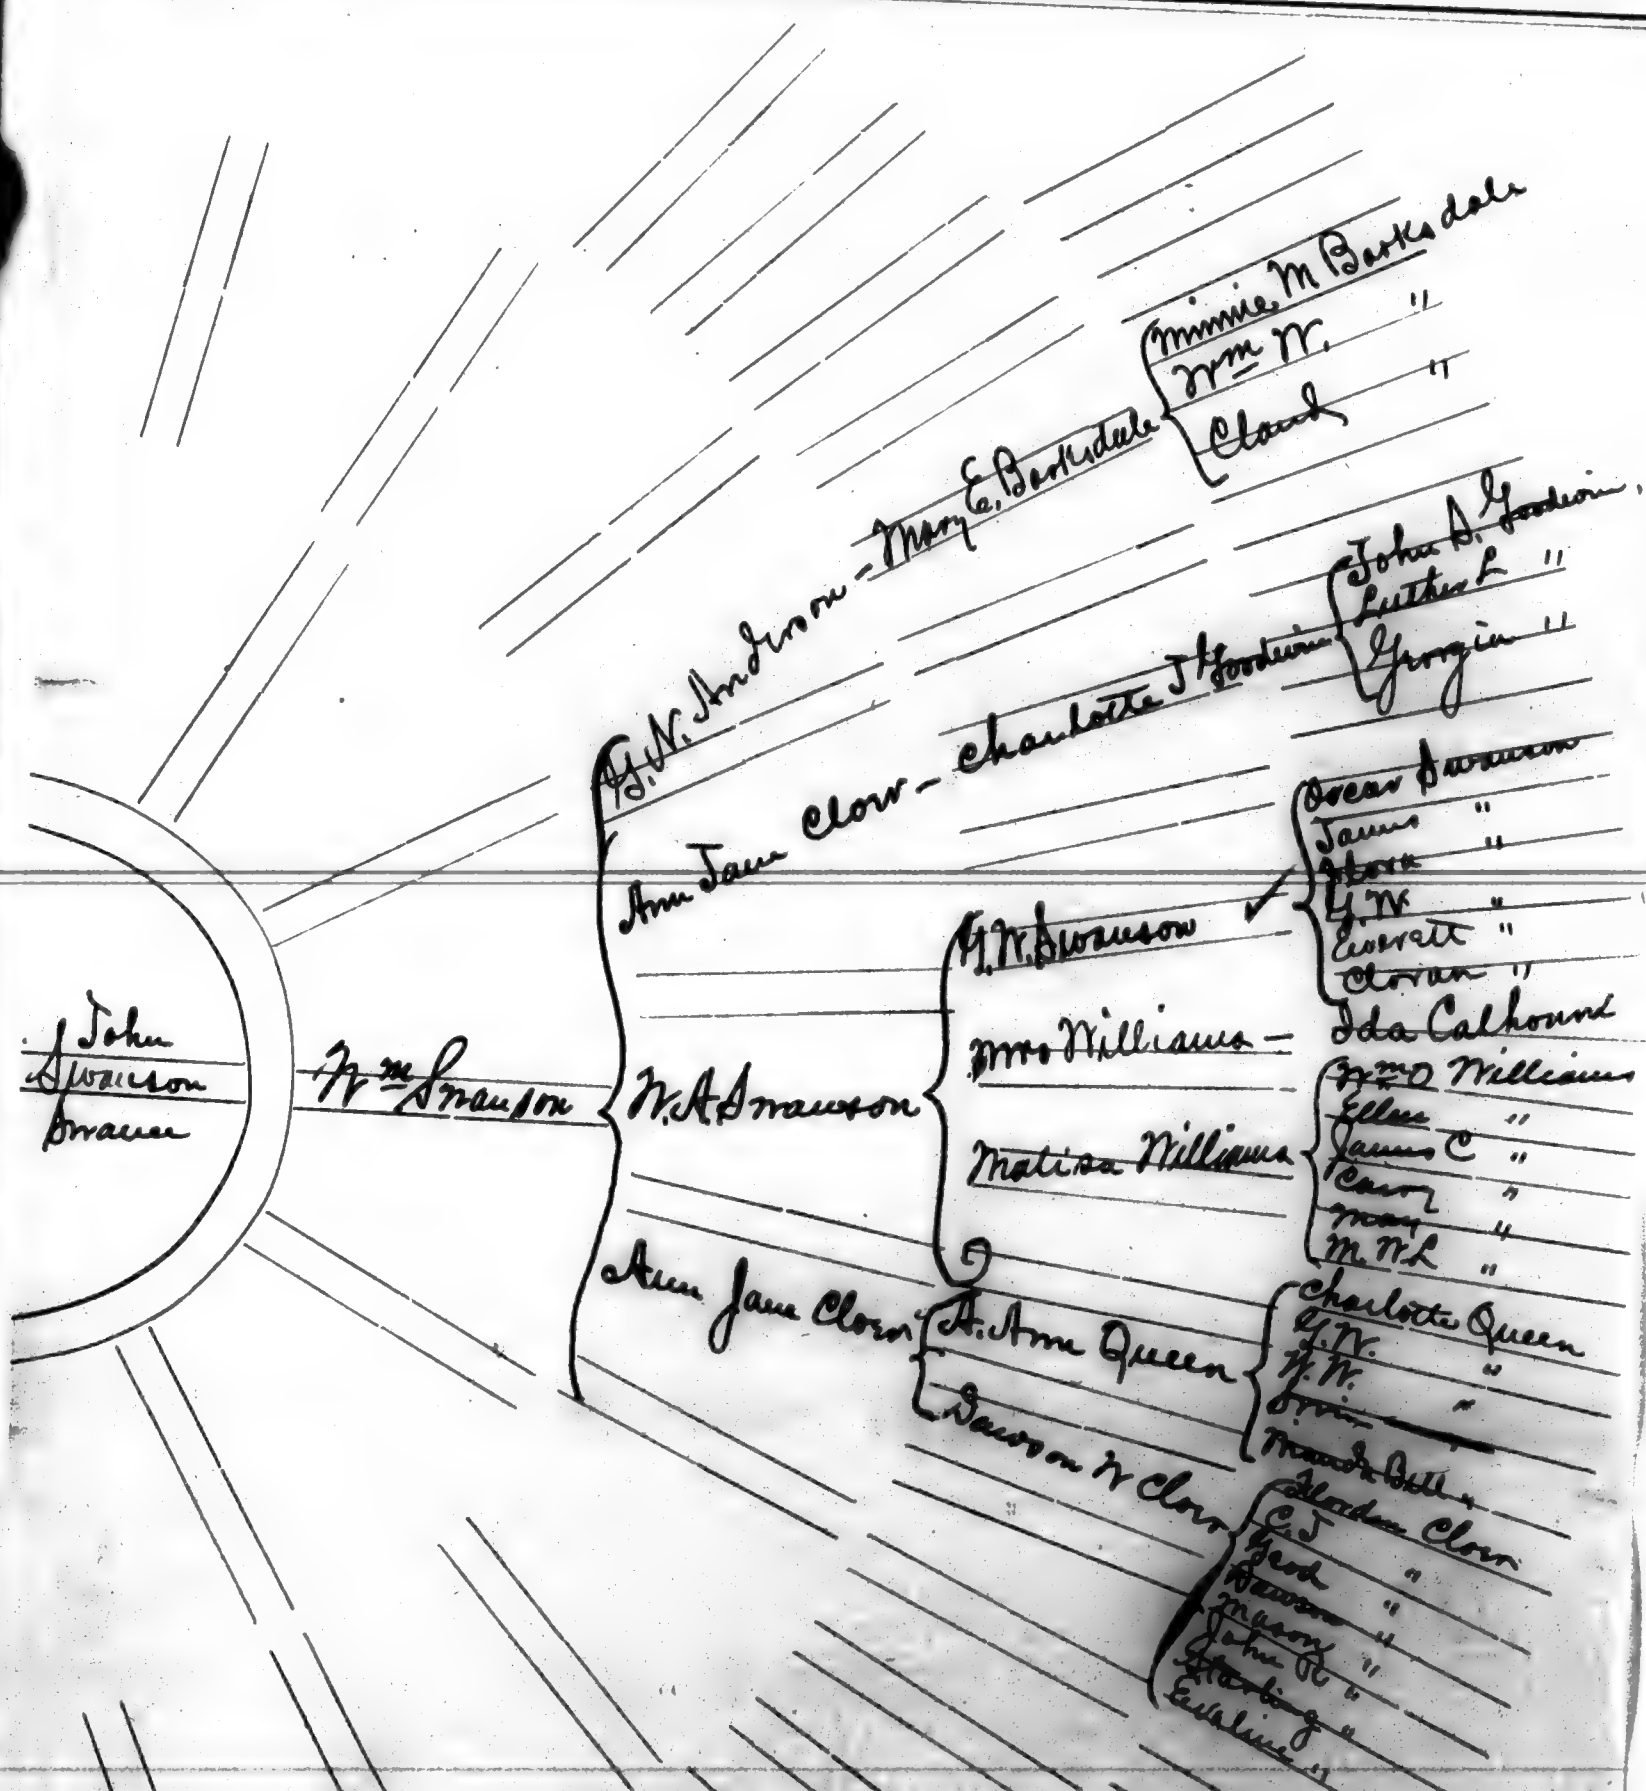 John
Swanson
Swance
Wm Swanson
G. N. Anderson - Mary E. Barksdale
Minnie M Barksdale
Wm W. "
Claud "
Ann Jane Clowr - Charlotte J Goodwin
John A. Goodwin,
Luther L "
Georgia "
W. A. Swanson
G. W. Swanson
Oscar Swanson
James "
Flora "
G. W. "
Everett "
"
Mrs Williams - Ida Calhound
Matisa Williams
Wm O Williams
Ellen "
James C "
"
May "
M. W L "
Ann Jane Clowr
A. Ann Queen
Charlotte Queen
G. W. "
W. W. "
Irvin "
Manda Bell "
Dawson W Clowr
Clowr
C. J "
"
Dawson "
Mason "
John R "
Starling "
Evaline "